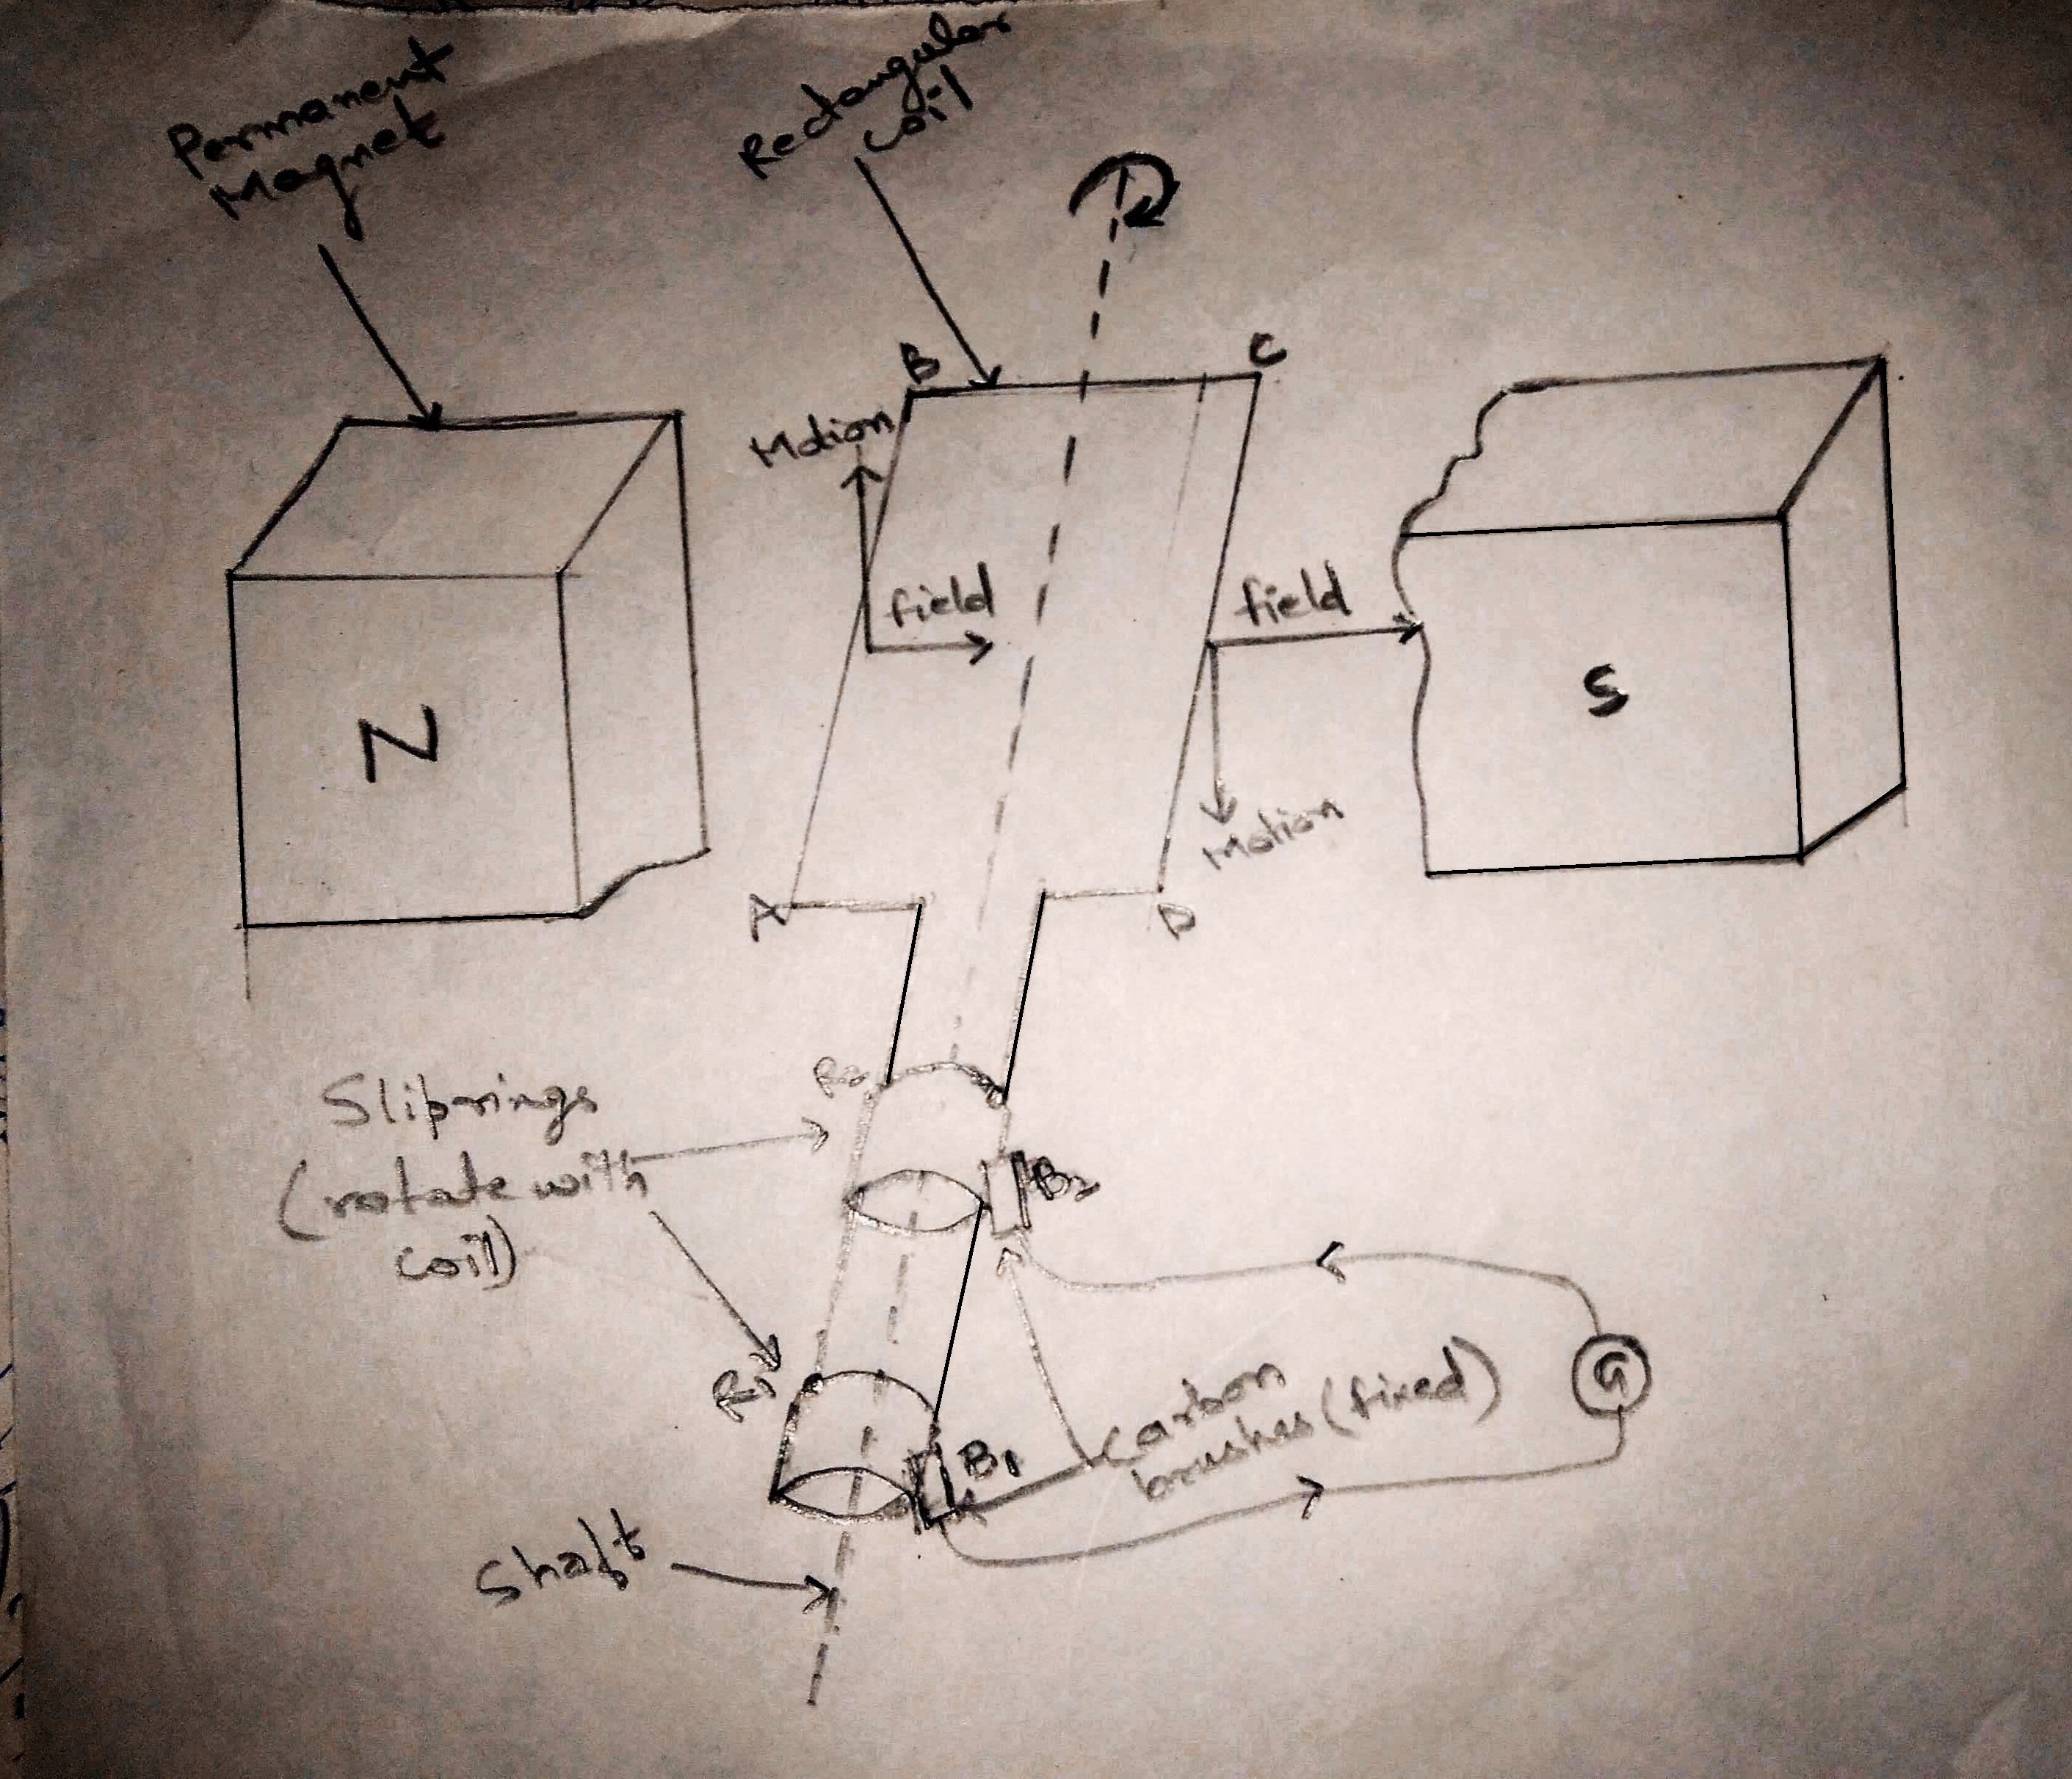 Permanent
Magnet
Rectangular
coil
B
C
Motion
field
field
N
S
Motion
A
D
R2
Sliprings
(rotate with
coil)
B2
R1
G
Carbon
brushes (fixed)
B1
Shaft